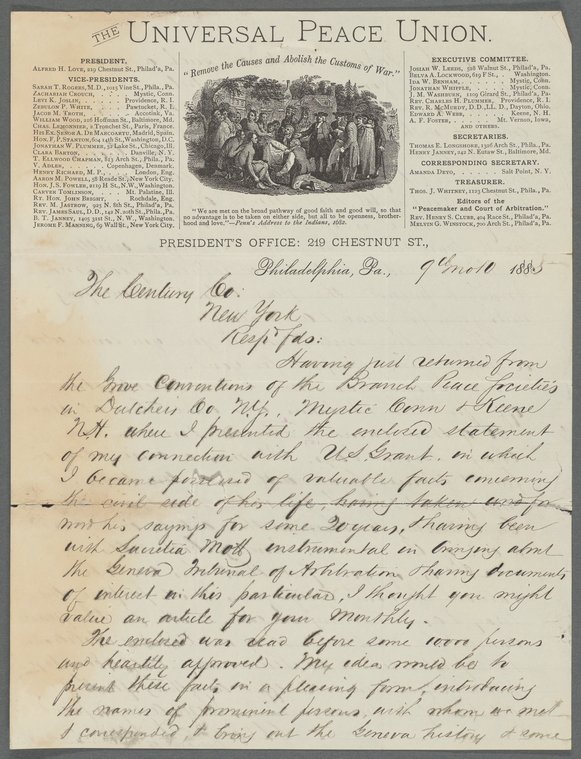 THE UNIVERSAL PEACE UNION.
PRESIDENT.
ALFRED H. LOVE, 219 Chestnut St., Philad'a, Pa.
VICE-PRESIDENTS.
SARAH T. ROGERS, M.D., 1015 Vine St., Phila., Pa.
ZACHARIAH CROUCH, . . . Mystic, Conn.
LEVI K. JOSLIN, . . . Providence, R. I.
ZEBULON P. WHITE, . . Pawtucket, R. I.
JACOB M. TROTH, . . . Accotink, Va.
WILLIAM WOOD, 216 Hoffman St., Baltimore, Md.
CHAS. LEMONNIER, 2 Tronchet St., Paris, France.
HIS EX. SEÑOR A. DE MARCOARTU, Madrid, Spain.
HON. F. P. STANTON, 614 14th St., Washington, D.C.
JONATHAN W. PLUMMER, 52 Lake St., Chicago, Ill.
CLARA BARTON, . . . Danville, N. Y.
T. ELLWOOD CHAPMAN, 823 Arch St., Phila. Pa.
V. ADLER, . . . Copenhagen, Denmark.
HENRY RICHARD, M. P., . . London, Eng.
AARON M. POWELL, 58 Reade St., New York City.
HON. J. S. FOWLER, 1119 H St., N. W., Washington.
CANTINE TOMLINSON, . . Mt. Palatine, Ill.
HON. JOHN BRIGHT, . . Rochdale, Eng.
REV. M. JASTROW, 925 N. 8th St., Philad'a, Pa.
REV. JAMES SAUL, D.D., 142 N. 20th St., Phila., Pa.
H. T. JANNEY, 1405 31st St., N. W., Washington.
JEROME F. MANNING, 69 Wall St., New York City.
"Remove the Causes and Abolish the Customs of War."
"We are met on the broad pathway of good faith and good will, so that
no advantage is to be taken on either side, but all to be openness, brother-
hood and love."—Penn's Address to the Indians, 1682.
EXECUTIVE COMMITTEE.
JOSIAH W. LEEDS, 528 Walnut St., Philad'a, Pa.
BELVA A. LOCKWOOD, 619 F St., . Washington.
IDA W. BENHAM, . . . Mystic, Conn.
JONATHAN WHIPPLE, . . Mystic, Conn.
J. M. WASHBURN, . 1109 Girard St., Philad'a, Pa.
REV. CHARLES H. PLUMMER, Providence, R. I.
REV. R. McMURDY, D.D., LL.D., Dayton, Ohio.
EDWARD A. WEBB, . . . Keene, N. H.
A. F. FOSTER, . . . Mt. Vernon, Iowa,
AND OTHERS.
SECRETARIES.
THOMAS E. LONGSHORE, 1326 Arch St., Philad'a, Pa.
HENRY JANNEY, 242 N. Eutaw St., Baltimore, Md.
CORRESPONDING SECRETARY.
AMANDA DEYO, . . . Salt Point, N. Y.
TREASURER.
THOS. J. WHITNEY, 1223 Chestnut St., Phila., Pa.
Editors of the
"Peacemaker and Court of Arbitration."
REV. HENRY S. CLUBB, 404 Race St., Philad'a, Pa.
MELVIN G. WINSTOCK, 700 Arch St., Philad'a, Pa.
PRESIDENT'S OFFICE: 219 CHESTNUT ST.,
Philadelphia, Pa., 9th mo 10 1885
The Century Co:
New York
Resp'd fds:
Having just returned from
the Grove Conventions of the Branch Peace Societies
in Dutchess Co N.Y., Mystic Conn & Keene
N.H. where I presented the enclosed statement
of my connection with U S Grant, in which
I became possessed of valuable facts concerning
the civil side of his life, having taken and for
his sayings for some 20 years, & having been
with Lucretia Mott instrumental in bringing about
the Geneva Tribunal of Arbitration & having documents
of interest in this particular, I thought you might
value an article for your Monthly.
The enclosed was read before some 10000 persons
and heartily approved. My idea would be to
present these facts in a pleasing form, introducing
the names of prominent persons, with whom we met
& corresponded, & bring out the Geneva history & some